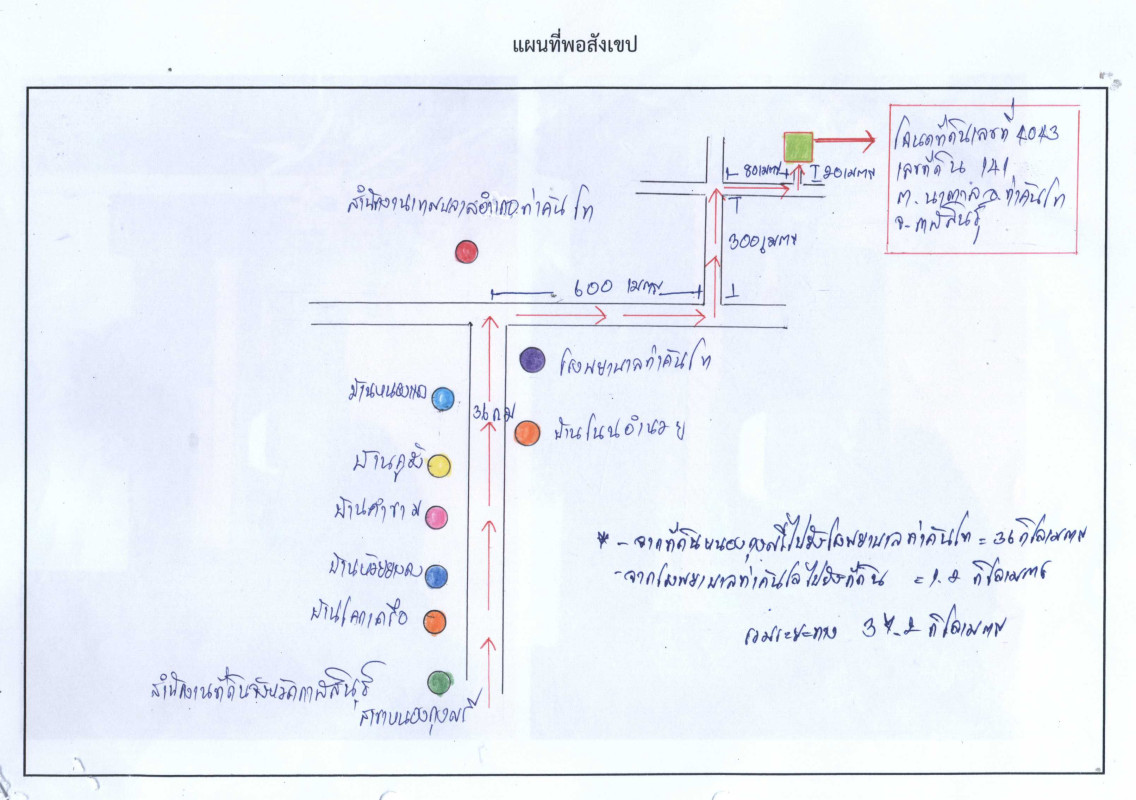 แผนที่พอสังเขป
โฉนดที่ดินเลขที่ 4043
เลขที่ดิน 141
ต. นาตาล อ. ท่าคันโท
จ. กาฬสินธุ์
80 เมตร
20 เมตร
สำนักงานเทศบาลตำบลท่าคันโท
300 เมตร
600 เมตร
โรงพยาบาลท่าคันโท
36 กม
บ้านโนนอำนวย
บ้านคำขาม
บ้านโคกเครือ
* - จากที่ดินหนองกุงศรีไปยังโรงพยาบาลท่าคันโท = 36 กิโลเมตร
- จากโรงพยาบาลท่าคันโทไปยังที่ดิน = 1.2 กิโลเมตร
รวมระยะทาง 37.2 กิโลเมตร
สำนักงานที่ดินจังหวัดกาฬสินธุ์
สาขาหนองกุงศรี